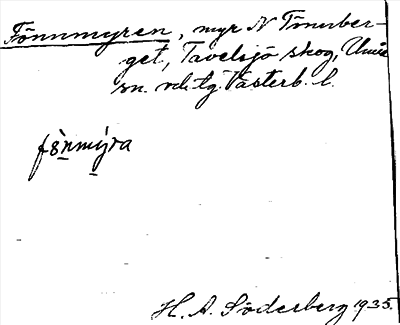 Fönnmyren, myr N Tönnber-
get, Tavelsjö skog, Umeå
sn. o. tg. Västerb. l.
fönmýra
H. A. Söderberg 1935.